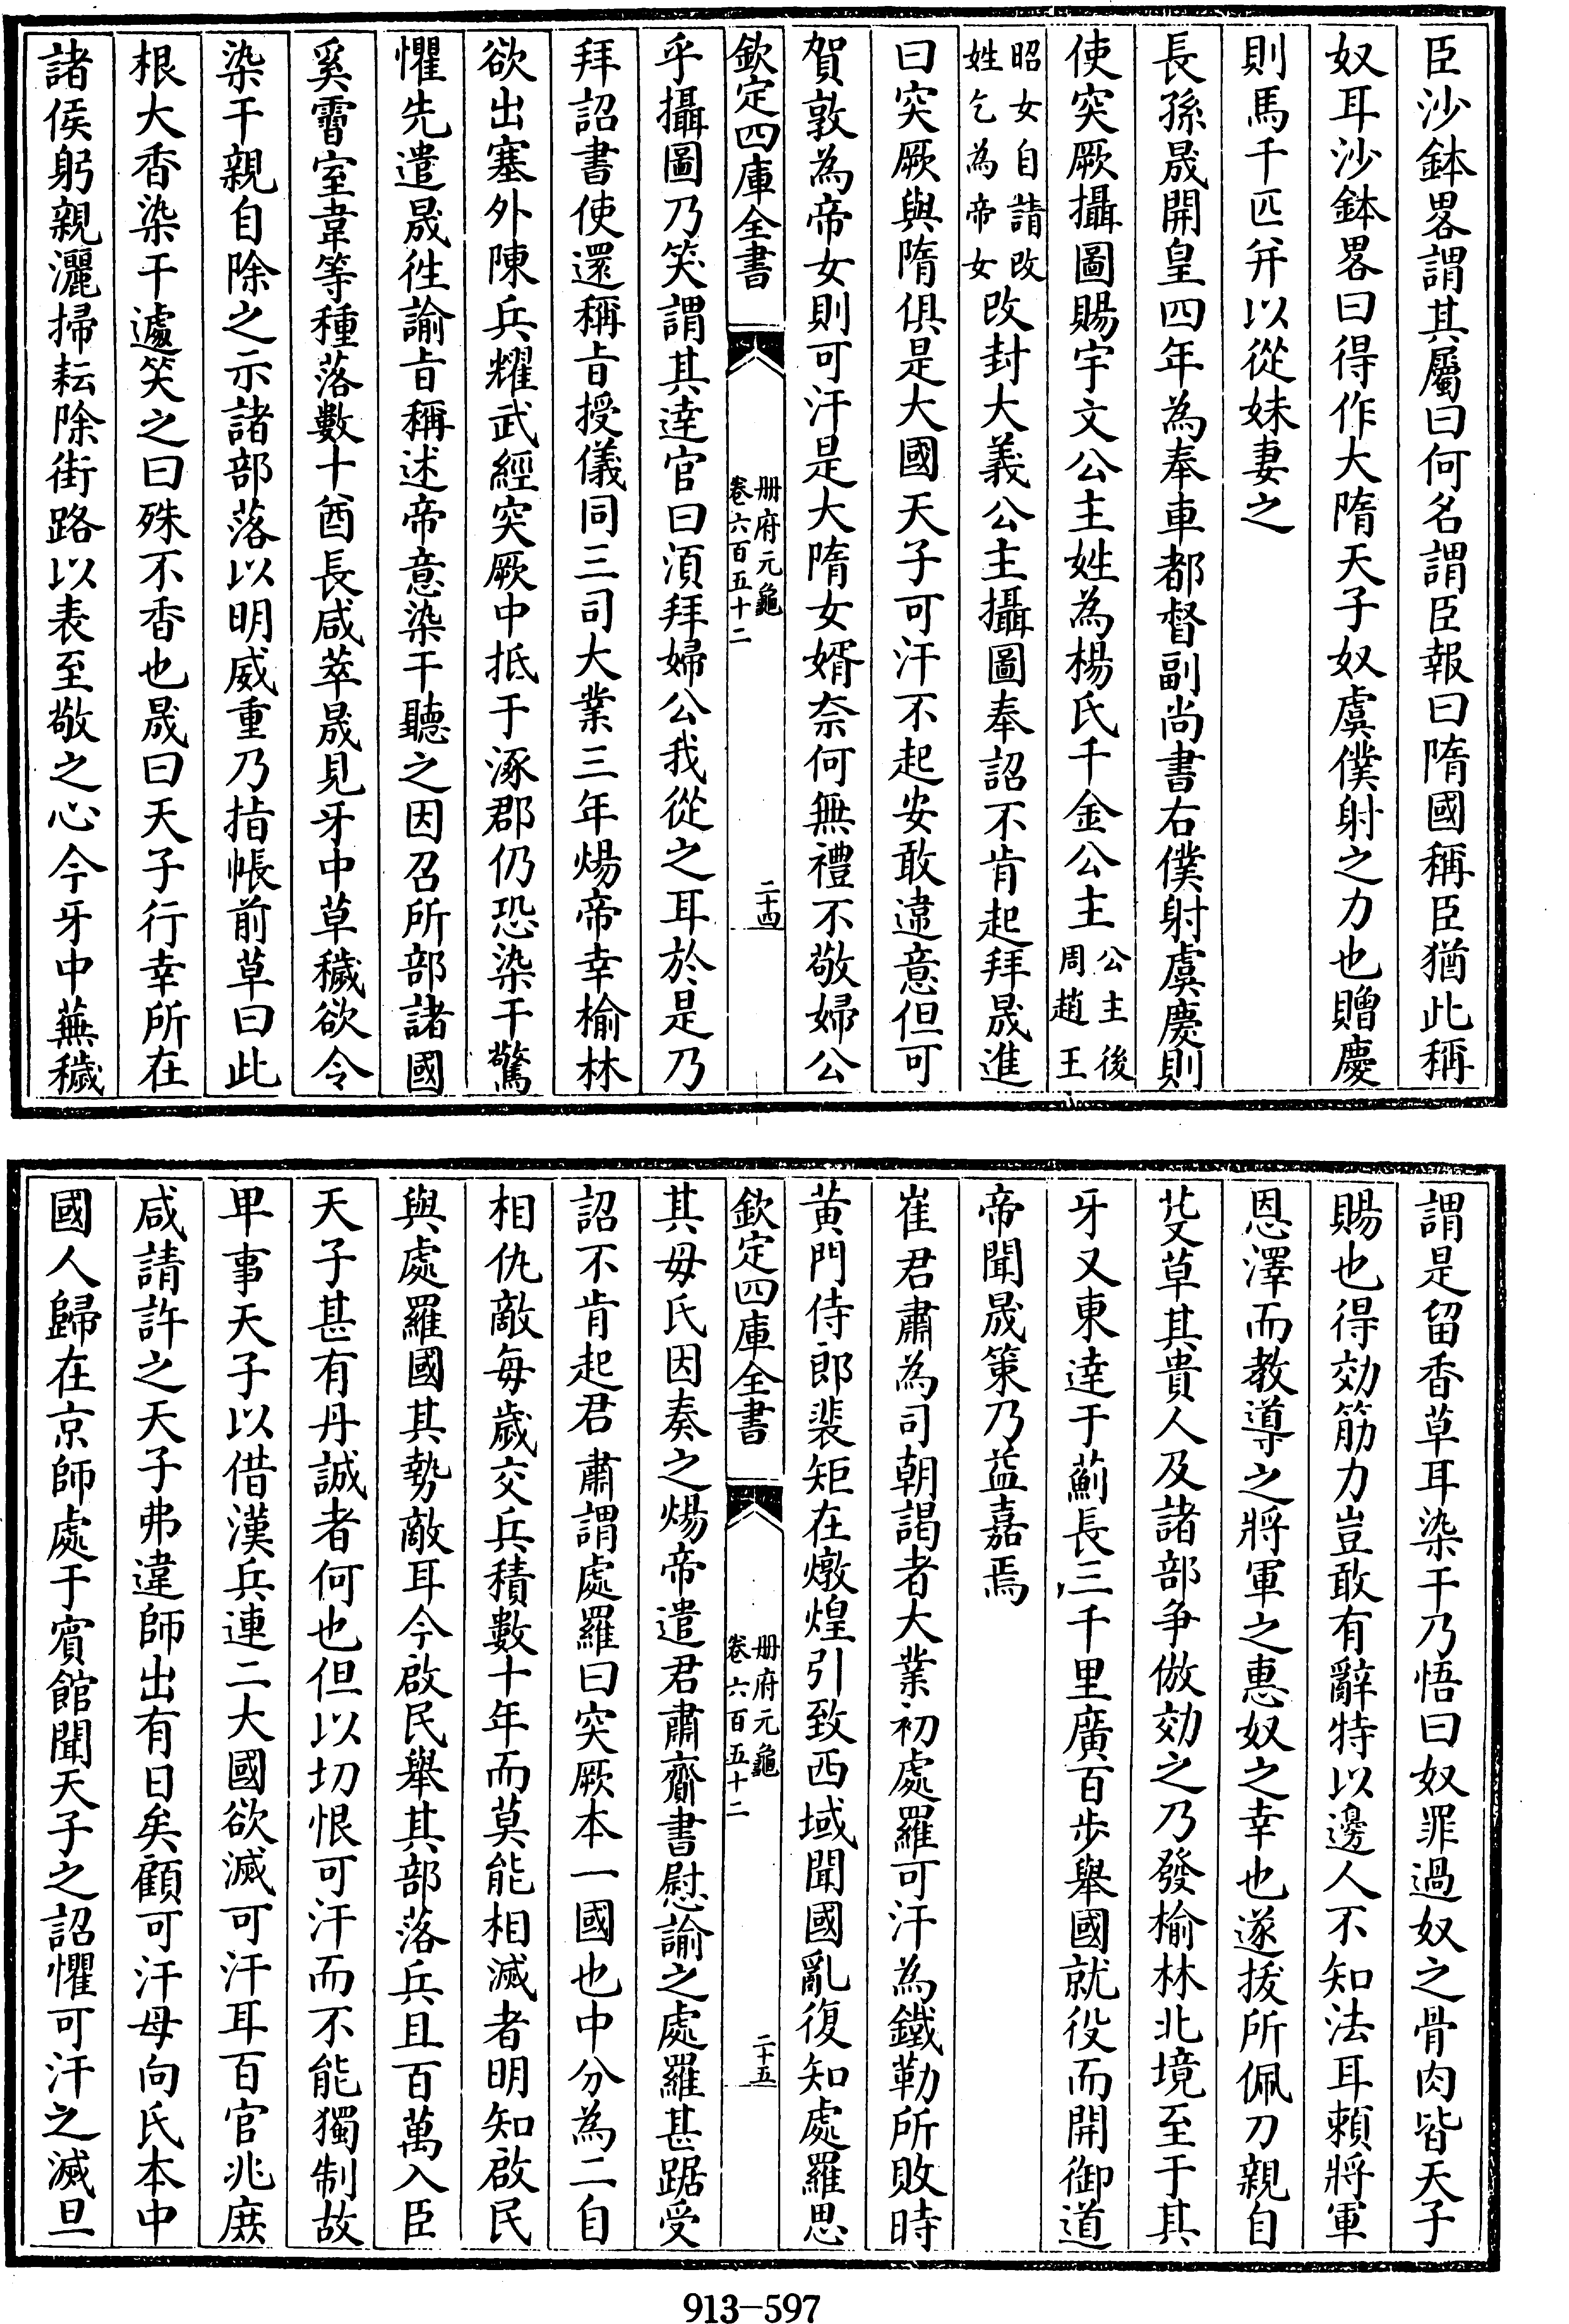 臣沙鉢畧謂其屬曰何名謂臣報曰隋國稱臣猶此稱
奴耳沙鉢畧曰得作大隋天子奴虞僕射之力也贈慶
則馬千匹并以從妹妻之
長孫晟開皇四年為奉車都督副尚書右僕射虞慶則
使突厥攝圖賜宇文公主姓為楊氏千金公主公主後周趙王
昭女自請改姓乞為帝女改封大義公主攝圖奉詔不肯起拜晟進
曰突厥與隋俱是大國天子可汗不起安敢違意但可
賀敦為帝女則可汗是大隋女婿奈何無禮不敬婦公
欽定四庫全書
冊府元龜
卷六百五十二
二十四
乎攝圖乃笑謂其達官曰須拜婦公我從之耳於是乃
拜詔書使還稱旨授儀同三司大業三年煬帝幸榆林
欲出塞外陳兵耀武經突厥中抵于涿郡仍恐染干驚
懼先遣晟徃諭旨稱述帝意染干聽之因召所部諸國
奚霫室韋等種落數十酋長咸萃晟見牙中草穢欲令
染干親自除之示諸部落以明威重乃指帳前草曰此
根大香染干遽笑之曰殊不香也晟曰天子行幸所在
諸侯躬親灑掃耘除街路以表至敬之心今牙中蕪穢
謂是留香草耳染干乃悟曰奴罪過奴之骨肉皆天子
賜也得効筋力豈敢有辭特以邊人不知法耳賴將軍
恩澤而教導之將軍之惠奴之幸也遂拔所佩刀親自
芟草其貴人及諸部争倣効之乃發榆林北境至于其
牙又東達于薊長三千里廣百步舉國就役而開御道
帝聞晟策乃益嘉焉
崔君肅為司朝謁者大業初處羅可汗為鐵勒所敗時
黄門侍郎裴矩在燉煌引致西域聞國亂復知處羅思
欽定四庫全書
冊府元龜
卷六百五十二
二十五
其毋氏因奏之煬帝遣君肅齎書慰諭之處羅甚踞受
詔不肯起君肅謂處羅曰突厥本一國也中分為二自
相仇敵每歲交兵積數十年而莫能相滅者明知啟民
與處羅國其勢敵耳今啟民舉其部落兵且百萬入臣
天子甚有丹誠者何也但以切恨可汗而不能獨制故
卑事天子以借漢兵連二大國欲滅可汗耳百官兆庶
咸請許之天子弗違師出有日矣顧可汗母向氏本中
國人歸在京師處于賓館聞天子之詔懼可汗之滅旦
913-597